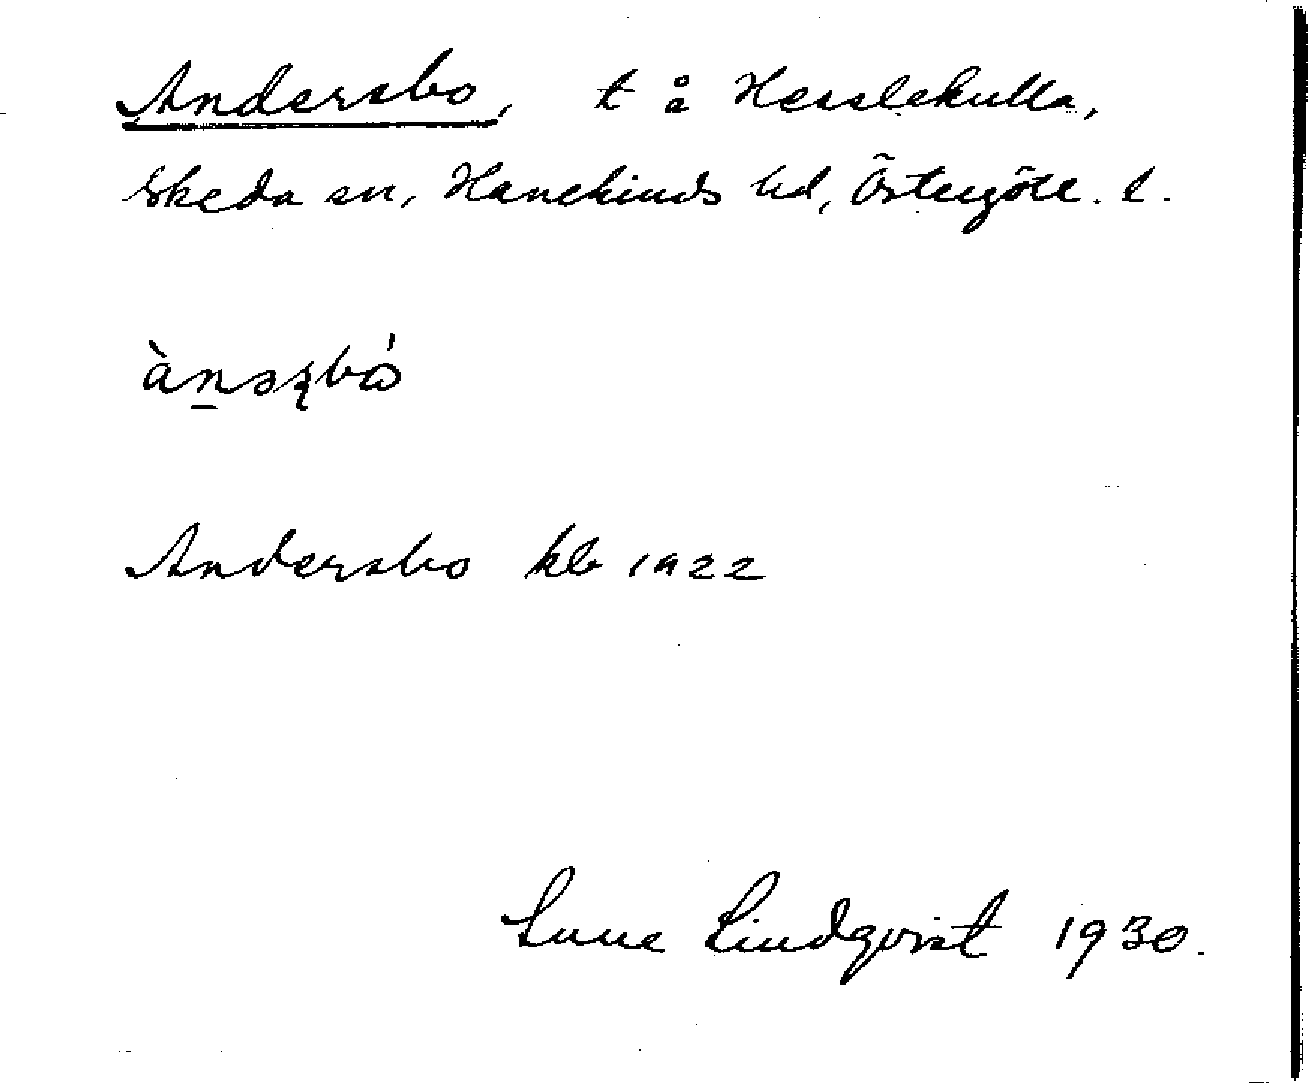 Andersbo, t å Hesslekulla,
Skeda sn, Hanekinds hd, Östergötl. l.
ànəʂbó
Andersbo kb 1922
Sune Lindqvist 1930.